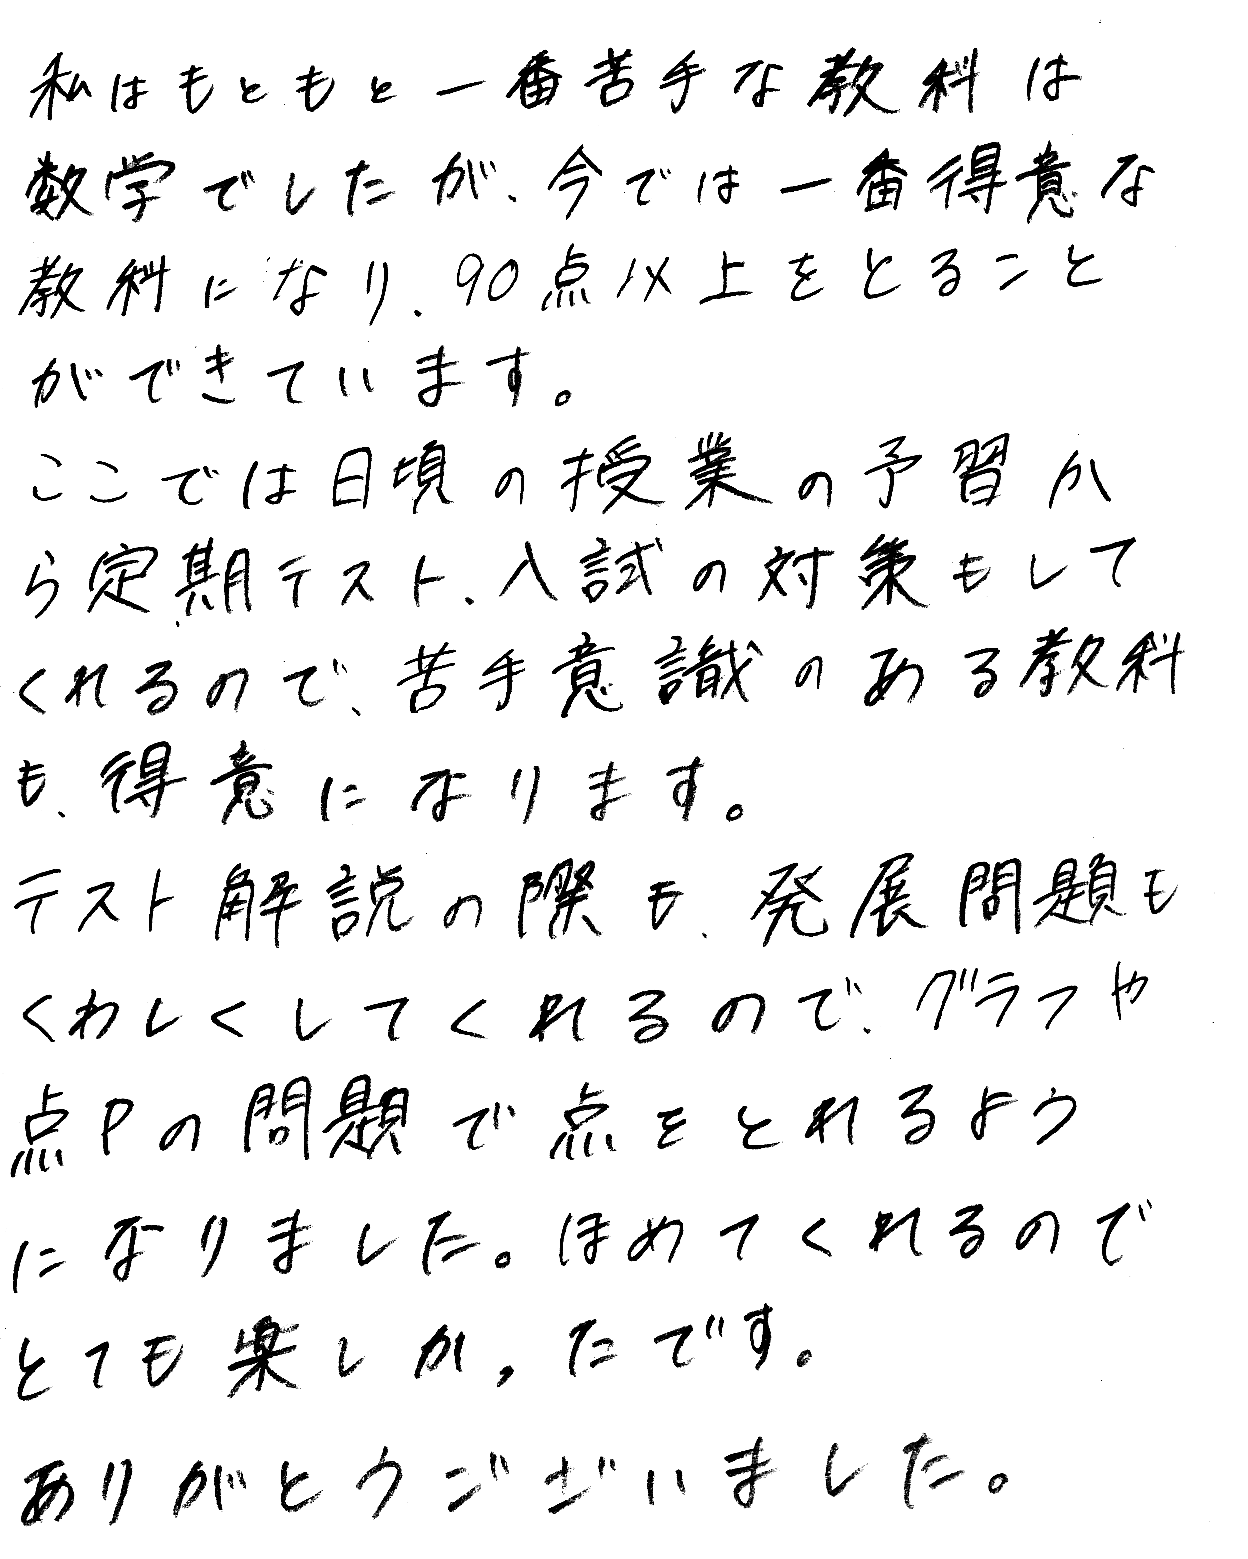 私はもともと一番苦手な教科は
数学でしたが、今では一番得意な
教科になり、90点以上をとること
ができています。
ここでは日頃の授業の予習か
ら定期テスト、入試の対策もして
くれるので、苦手意識のある教科
も、得意になります。
テスト解説の際も、発展問題も
くわしくしてくれるので、グラフや
点Pの問題で点をとれるよう
になりました。ほめてくれるので
とても楽しかったです。
ありがとうございました。